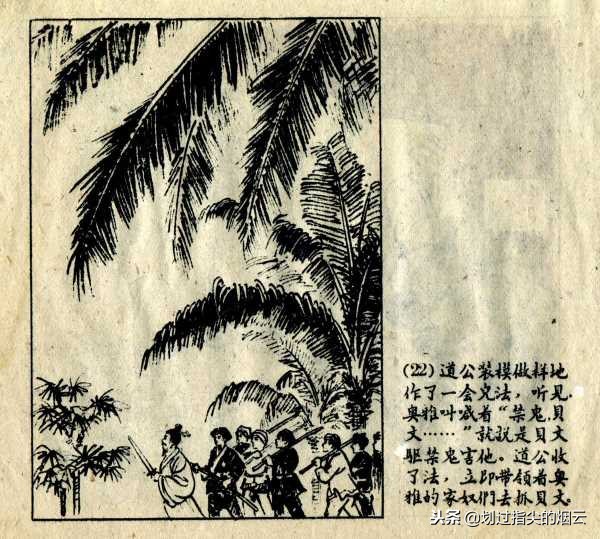 (22) 道公装模做样地
作了一会鬼法，听见
奥雅叫喊着“禁鬼貝
文……”就說是貝文
驱禁鬼害他。道公收
了法，立即带領着奥
雅的家奴們去抓貝文。
头条 @划过指尖的烟云